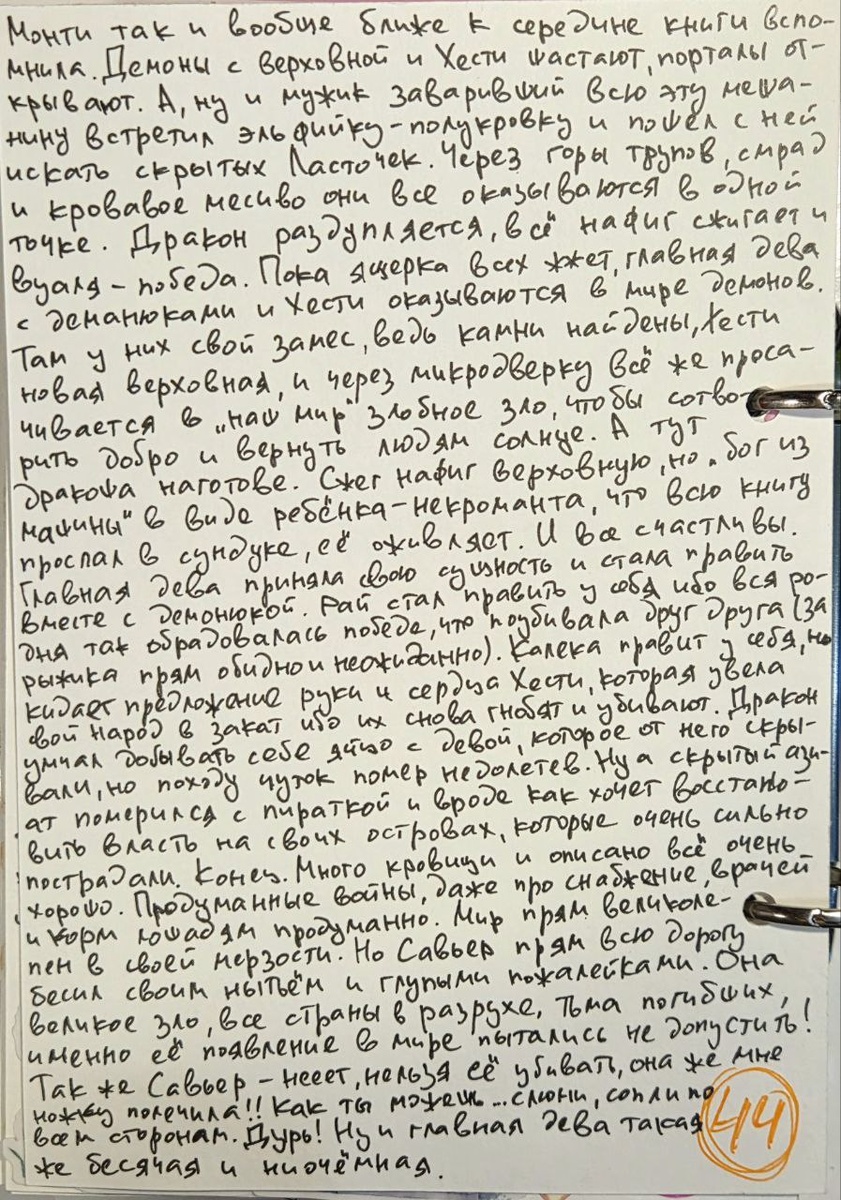 Монти так и вообще ближе к середине книги вспо-
мнила. Демоны с верховной и Хести шастают, порталы от-
крывают. А, ну и мужик заваривший всю эту меша-
нину встретил эльфийку-полукровку и пошёл с ней
искать скрытых Ласточек. Через горы трупов, смрад
и кровавое месиво они все оказываются в одной
точке. Дракон раздупляется, всё нафиг сжигает и
вуаля - победа. Пока ящерка всех жжет, главная дева
с деманюками и Хести оказываются в мире демонов.
Там у них свой замес, ведь камни найдены, Хести
новая верховная, и через микродверку всё же проса-
чивается в „наш мир" злобное зло, чтобы сотво-
рить добро и вернуть людям солнце. А тут
дракоша наготове. Сжег нафиг верховную, но „бог из
машины" в виде ребёнка-некроманта, что всю книгу
проспал в сундуке, её оживляет. И все счастливы.
Главная дева приняла свою сущность и стала править
вместе с демонюкой. Рай стал править у себя ибо вся ро-
дня так обрадовалась победе, что поубивала друг друга (за
рыжика прям обидно и неожиданно). Калека правит у себя, но
кидает предложение руки и сердца Хести, которая увела
свой народ в закат ибо их снова гнобят и убивают. Дракон
умчал добывать себе яйцо с девой, которое от него скры-
вали, но походу чуток помер недолетев. Ну а скрытый ази-
ат померился с пираткой и вроде как хочет восстано-
вить власть на своих островах, которые очень сильно
пострадали. Конец. Много кровищи и описано всё очень
хорошо. Продуманные войны, даже про снабжение, врачей
и корм лошадям продуманно. Мир прям великоле-
пен в своей мерзости. Но Савьер прям всю дорогу
бесил своим нытьём и глупыми пожалейками. Она
великое зло, все страны в разрухе, тьма погибших,
именно её появление в мире пытались не допустить!
Так же Савьер - нееет, нельзя её убивать, она же мне
ножку полечила!! Как ты можешь... слюни, сопли по
всем сторонам. Дурь! Ну и главная дева такая
же бесячая и ниочёмная.
44